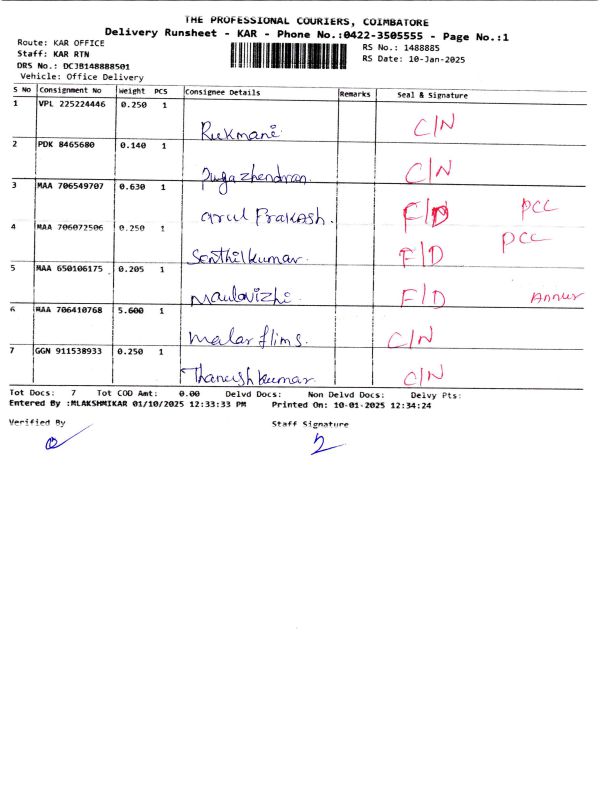 THE PROFESSIONAL COURIERS, COIMBATORE
Delivery Runsheet - KAR - Phone No.:0422-3505555 - Page No.:1
Route: KAR OFFICE
Staff: KAR RTN
DRS No.: DC3B148888501
Vehicle: Office Delivery
RS No.: 1488885
RS Date: 10-Jan-2025
S No Consignment No Weight PCS Consignee Details Remarks Seal & Signature
1 VPL 225224446 0.250 1
Rukmani C/N
2 PDK 8465680 0.140 1
Pugazhendran. C/N
3 MAA 706549707 0.630 1
Arul Prakash. F/D PCC
4 MAA 706072506 0.250 1
Senthilkumar. F/D PCC
5 MAA 650106175 0.205 1
F/D Annur
6 MAA 706410768 5.600 1
Malar flims. C/N
7 GGN 911538933 0.250 1
Thanushkumar C/N
Tot Docs: 7 Tot COD Amt: 0.00 Delvd Docs: Non Delvd Docs: Delvy Pts:
Entered By :MLAKSHMIKAR 01/10/2025 12:33:33 PM Printed On: 10-01-2025 12:34:24
Verified By Staff Signature